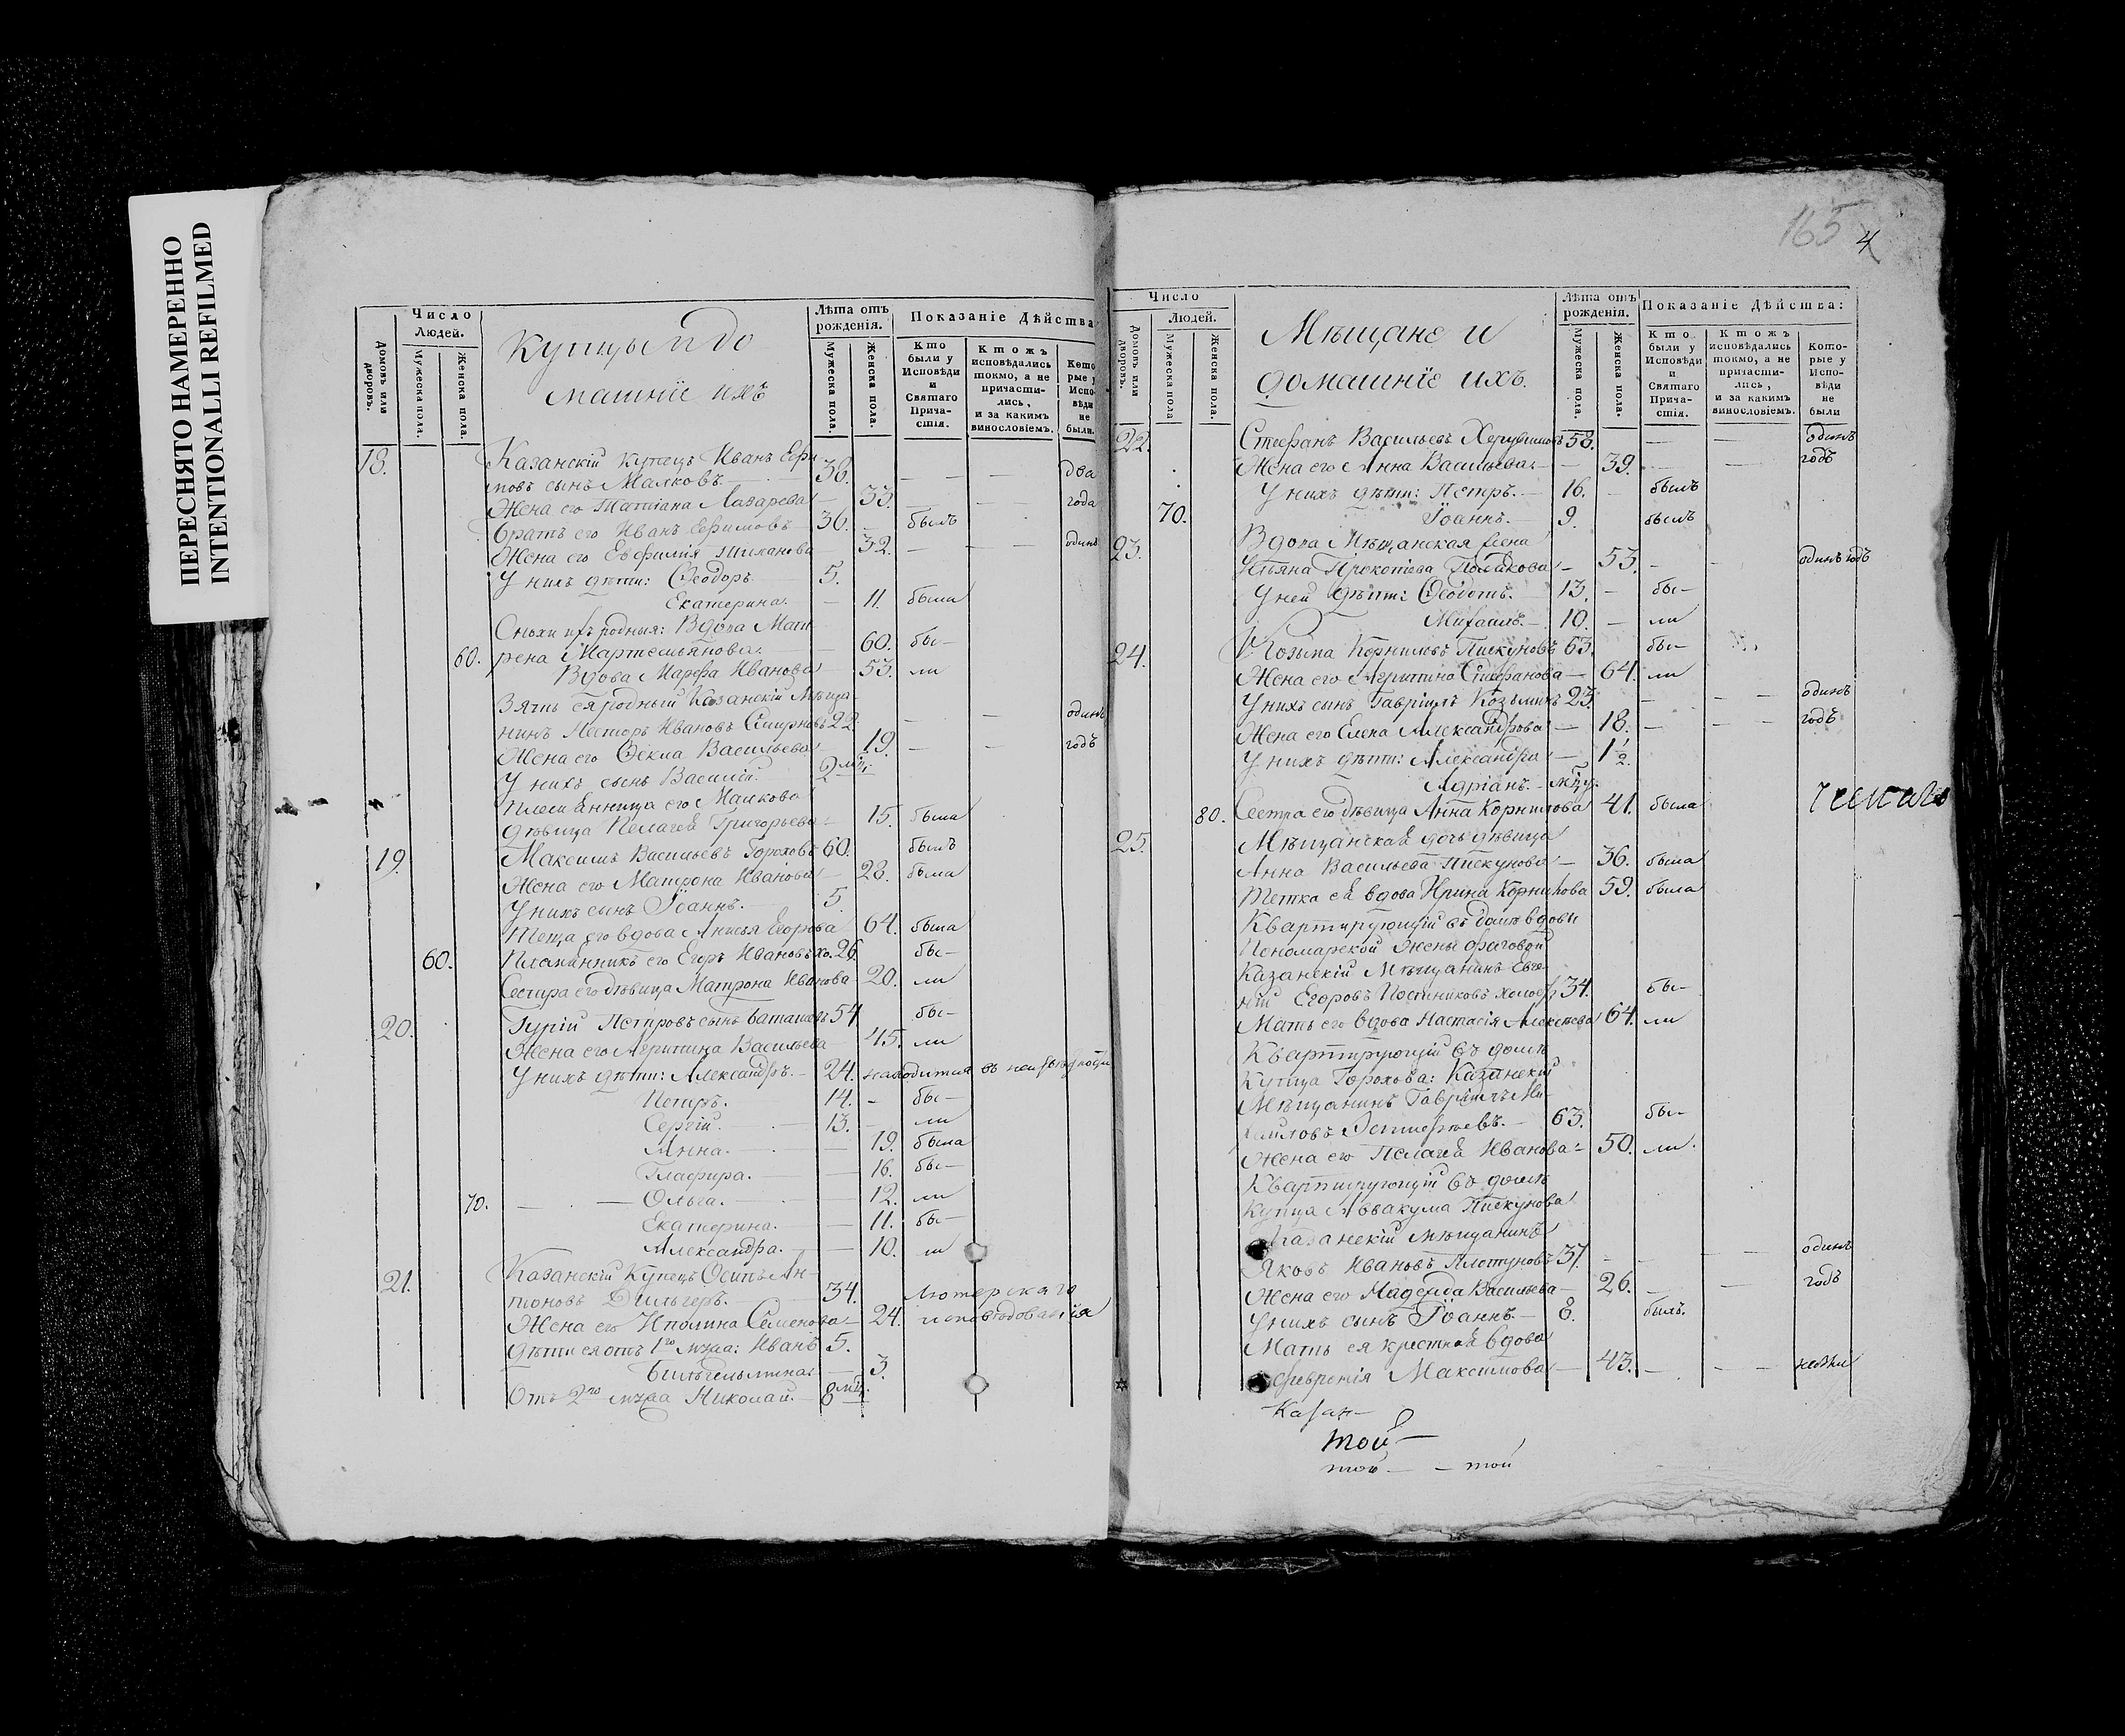 ПЕРЕСНЯТО НАМЕРЕННО
INTENTIONALLI REFILMED
165 4
Число Людей.
Домовъ или дворовъ.
Мужеска пола.
Женска пола.
Купцы и до
машнïе ихъ
Лѣта отъ рождения.
Мужеска пола.
Женска пола.
Показанїе Дѣйства
Кто были у Исповѣди и Святаго Причастїя.
Ктожъ исповѣдались токмо, а не причастились, и за какимъ винословїемъ.
Которые у Исповѣди не были.
18. Казанскій купецъ Иванъ Ефи
мовъ сынъ Малковъ 36. — — два
Жена его Татїана Лазарева — 33. — — года
Братъ его Иванъ Ефимовъ — 36. — былъ
Жена его Евфимїя — 32. — — одинъ
У нихъ дѣти: Ѳеодоръ. 5.
Екатерина. — 11. была
Снохи ихъ родныя: Вдова Мат
60. рена Мартемьянова. — 60. бы—
Вдова Марѳа Иванова 53. ли
Зять ея родный Казанскїй Мѣща
нинъ Несторъ Ивановъ Смирновъ 22. — — одинъ
Жена его Ѳекла Васильева 19. — — годъ
У нихъ сынъ Василїй. 2
Племянница его Малкова
дѣвица Пелагея Григорьева — 15. была
19. Максимъ Васильевъ Гороховъ 60. былъ
Жена его Матрона Иванова — 28. была
У нихъ сынъ Їоаннъ. — 5.
Теща его вдова Анисья Егорова 64. была
60. Племянникъ его Егоръ Ивановъ хо. 26. бы—
Сестра его дѣвица Матрона Иванова 20. ли
20. Гурїй Петровъ сынъ 54. бы—
Жена его Агрипина Васильева 45. ли
У нихъ дѣти: Александръ. — 24. находится въ неизвѣстности
Петръ. 14. — бы—
Сергїй. — 13. — ли
Анна. — 19. была
Глафира. 16. бы—
70. — Ольга. — 12. ли
Екатерина. — 11. бы—
Александра. — 10. ли
21. Казанскїй Купецъ Осипъ Ан-
тоновъ 34. Лютерскаго
Жена его Семенова — 24. исповѣдованїя
Дѣти ея отъ 1го мужа: Иванъ 5.
Вильгельмина — 3.
Отъ 2го мужа Николай. — 8
Число Людей.
Домовъ или дворовъ.
Мужеска пола
Женска пола.
Мѣщане и
домашнїе ихъ.
Лѣта отъ рождения.
Мужеска пола.
Женска пола.
Показанїе Дѣйства:
Кто были у Исповѣди и Святаго Причастїя.
Ктожъ исповѣдались токмо, а не причастились, и за какимъ винословїемъ.
Которые у Исповѣди не были
22. Стефанъ Васильевъ Херувимовъ 58. — — одинъ
Жена его Анна Васильева. — 39. — — годъ
У нихъ дѣти: Петръ. — 16. — былъ
70. Їоаннъ. — 9. былъ
23. Вдова Мѣщанская жена
Ульяна Прокопїева Полякова — 53. — — одинъ годъ
У ней дѣти: Ѳедотъ. 13. — бы—
Михаилъ. — 10. — ли
24. Козьма Корниловъ Пискуновъ 63. бы—
Жена его Агрипина Стефанова — 64. ли
У нихъ сынъ Гаврїилъ Козьминъ 23. — — одинъ
Жена его Елена Александрова — 18. — — годъ
У нихъ дѣти: Александра — 1 1/2.
Адрїанъ.
80. Сестра его дѣвица Анна Корнилова 41. была
25. Мѣщанская дочь дѣвица
Анна Васильева Пискунова — 36. была
Тетка ея вдова Ирина Корнилова 59. была
Квартирующїй въ домѣ вдовы
Пономарской жены
Казанскїй Мѣщанинъ Евге-
нїй Егоровъ Постниковъ холос. 34. бы—
Мать его вдова Настасїя Алексѣева 64. ли
Квартирующїй въ домѣ
Купца Горохова: Казанскїй
Мѣщанинъ Гаврїилъ Ми-
хаиловъ 63. бы—
Жена его Пелагея Иванова — 50. ли.
Квартирующїй въ домѣ
Купца Аввакума Пискунова
Казанскїй мѣщанинъ
Яковъ Ивановъ 37. — — одинъ
Жена его Надежда Васильева — 26. — — годъ
У нихъ сынъ Їоаннъ. — 8. былъ.
Мать ея крестная вдова
Февронїя Максимова — 43. — —
Казан—
той—
той— — той